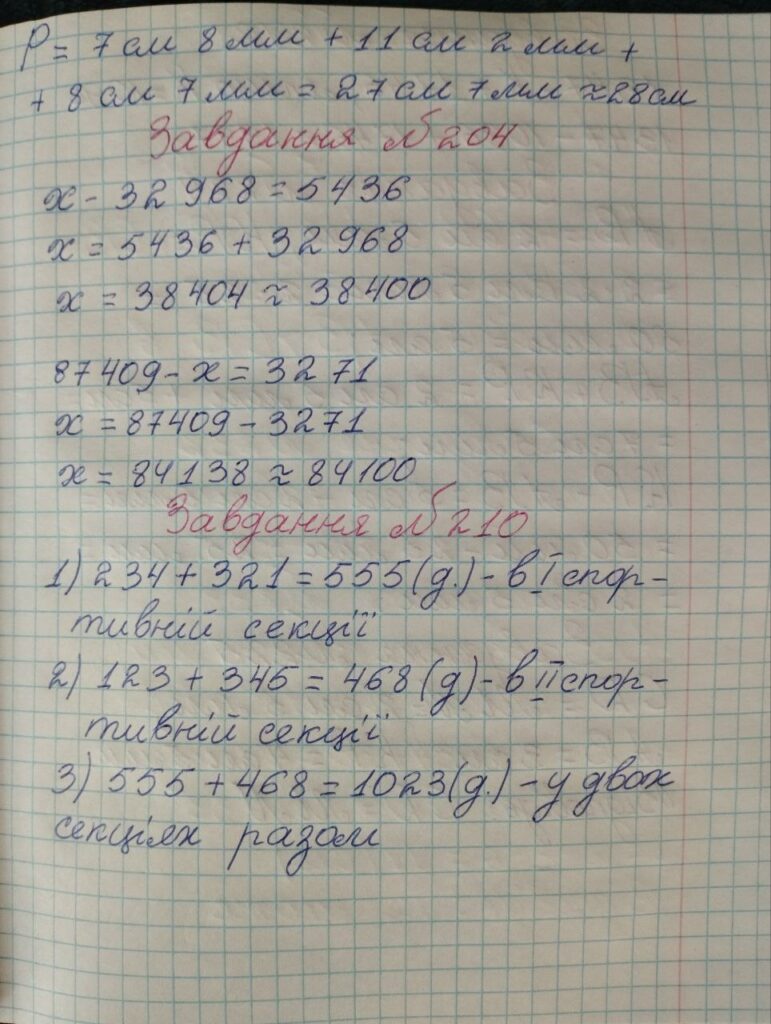 P = 7 см 8 мм + 11 см 2 мм +
+ 8 см 7 мм = 27 см 7 мм ≈ 28 см
Завдання № 204
x - 32 968 = 5436
x = 5436 + 32 968
x = 38 404 ≈ 38 400
87 409 - x = 3271
x = 87409 - 3271
x = 84138 ≈ 84100
Завдання № 210
1) 234 + 321 = 555 (д.) - в I спор-
тивній секції
2) 123 + 345 = 468 (д) - в II спор-
тивній секції
3) 555 + 468 = 1023 (д.) - у двох
секціях разом